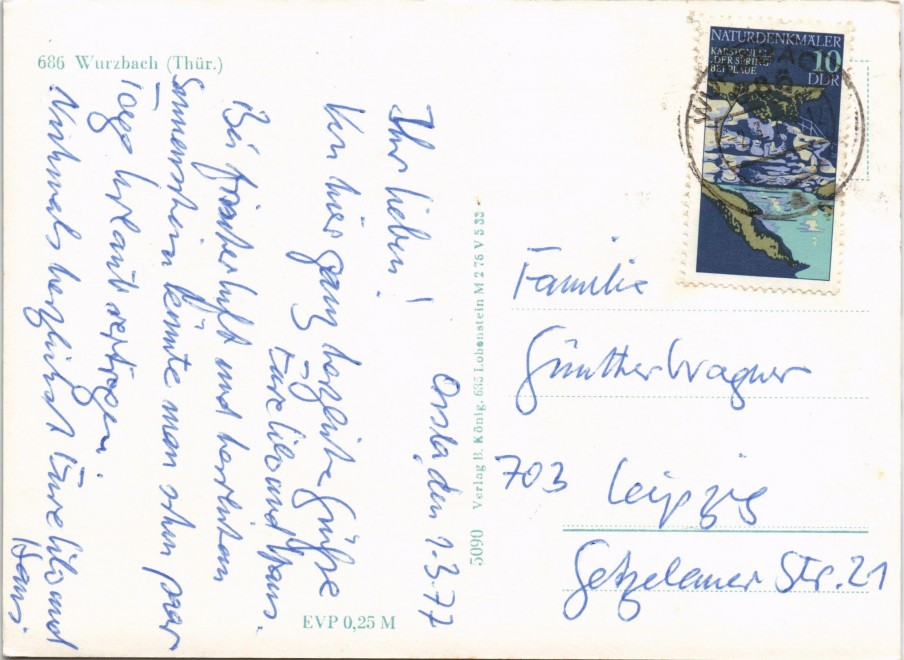 686 Wurzbach (Thür.)
Ihr lieben!
den 1.3.77
Von hier ganz herzliche Grüße
Eure Lilo und Hans.
Bei frischer Luft und herrlichen
Sonnenschein könnte man schon paar
Tage Urlaub vertragen.
Nochmals herzlichst Eure Lilo und
Hans.
EVP 0,25 M
5090 Verlag B. König, 685 Lobenstein M 2 76 V 5 33
NATURDENKMÄLER
KARSTQUELLE
„DER SPRING“
BEI PLAUE
10
DDR
Familie
Günther Wagner
703 Leipzig
Str. 21